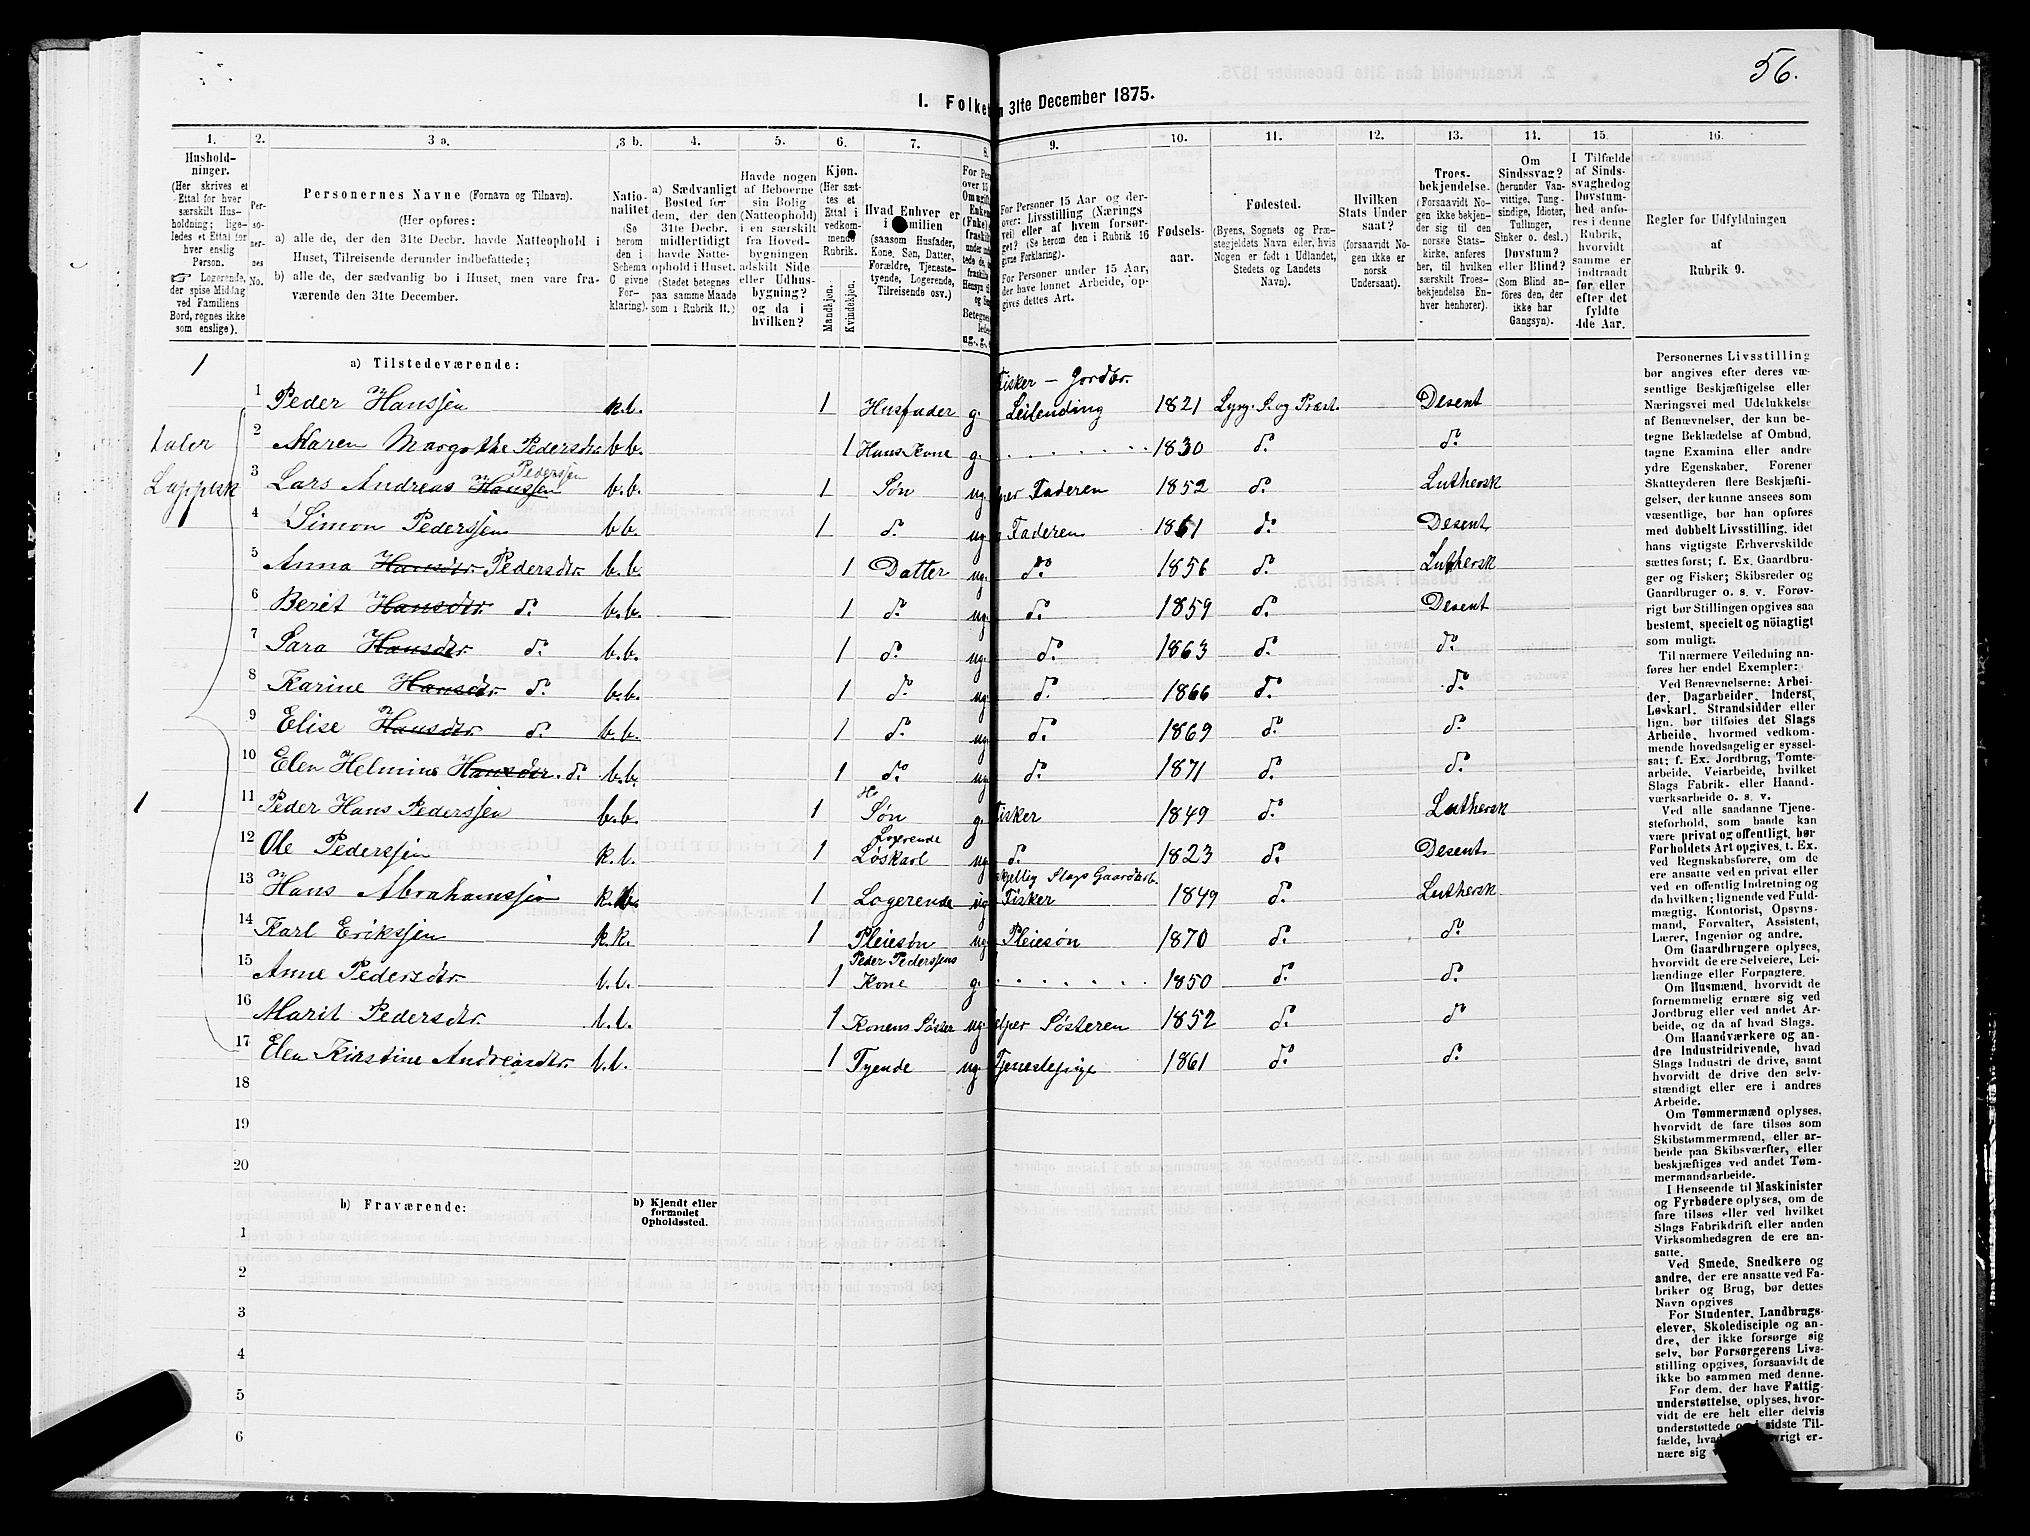 56.
1. Folke
n 31te December 1875.
1. 2. 3 a. 3 b. 4. 5. 6. 7. 8. 9. 10. 11. 12. 13. 14. 15. 16.
Hushold-
ninger.
(Her skrives et
Ettal for hver
særskilt Hus-
holdning; lige-
ledes et Ettal for
hver enslig
Person.
☞ Logerende,
der spise Middag
ved Familiens
Bord, regnes ikke
som enslige).
Per-
so-
ner-
nes
No.
Personernes Navne (Fornavn og Tilnavn).
(Her opføres:
a) alle de, der den 31te Decbr. havde Natteophold i
Huset, Tilreisende derunder indbefattede;
b) alle de, der sædvanlig bo i Huset, men vare fra-
værende den 31te December.
Natio-
nalitet
(Se
herom
den i
Schema
C givne
For-
klaring).
a) Sædvanligt
Bosted for
dem, der den
31te Decbr.
midlertidigt
havde Natte-
ophold i Huset.
(Stedet betegnes
paa samme Maade
som i Rubrik 11.)
Havde nogen
af Beboerne
sin Bolig
(Natteophold)
i en særskilt
fra Hoved-
bygningen
adskilt Side
eller Udhus-
bygning?
og da i
hvilken?
Kjøn.
(Her sæt-
tes et
Ettal i
vedkom-
mende
Rubrik.
Mandkjøn.
Kvindekjøn.
Hvad Enhver er
i Familien
(saasom Husfader,
Kone, Søn, Datter,
Forældre, Tjeneste-
tyende, Logerende,
Tilreisende osv.)
For Personer 15 Aar og der-
over: Livsstilling (Nærings
vei) eller af hvem forsør-
get? (Se herom i Rubrik 16
givne Forklaring).
For Personer under 15 Aar,
der have lønnet Arbeide, op-
gives dettes Art.
Fødsels-
aar.
Fødested.
(Byens, Sognets og Præ-
stegjeldets Navn eller, hvis
Nogen er født i Udlandet,
Stedets og Landets
Navn).
Hvilken
Stats Under
saat?
(forsaavidt No-
gen ikke er
norsk
Undersaat).
Troes-
bekjendelse.
(Forsaavidt No-
gen ikke bekjen-
der sig til den
norske Stats-
kirke, anføres
her, til hvilken
særskilt Troes-
bekjendelse En-
hver henhører).
Om
Sindssvag?
(herunder Van-
vittige, Tung-
sindige, Idioter,
Tullinger,
Sinker o. desl.)
Døvstum?
eller Blind?
(Som Blind an-
føres den, der
ikke har
Gangsyn).
I Tilfælde
af Sinds-
svaghed og
Døvstum-
hed anfø-
res i denne
Rubrik,
hvorvidt
samme er
indtraadt
før eller
efter det
fyldte
4de Aar.
Regler for Udfyldningen
af
Rubrik 9.
a) Tilstedeværende:
1
taler
Lappisk
1 Peder Hanssen k.l. 1 Husfader g. Fisker – Jordbr. Leilending 1821 Lyng. S. og Præst. Desent
2 Maren Margrethe Pedersdtr b.b. 1 Hans Kone g. 1830 do. do.
3 Lars Andreas Hanssen Pederssen b.b. 1 Søn ug. per Faderen 1852 do. Luthersk
4 Simon Pederssen b.b. 1 do. ug. Faderen 1861 do. Desent
5 Anna Hansdtr Pedersdtr. b.b. 1 Datter ug. do. 1856 do. Luthersk
6 Berit Hansdtr do. b.b. 1 do. ug. do. 1859 do. Desent
7 Sara Hansdtr do. b.b. 1 do. ug. do. 1863 do. do.
8 Karine Hansdtr do. b.b. 1 do. ug. do. 1866 do. do.
9 Elise Hansdtr do. b.b. 1 do. ug. do. 1869 do. do.
10 Elen Helmine Hansdtr. do. b.b. 1 do. ug. do. 1871 do. do.
1 11 Peder Hans Pederssen b.b. 1 Søn g. Fisker 1849 do. Luthersk
12 Ole Pederssen k.l. 1 Logerende Løskarl ug. do. 1823 do. Desent
13 Hans Abrahamssen 1 Logerende ug. Fisker 1849 do. Luthersk
14 Karl Erikssen k.k. 1 Pleiesøn ug. Pleiesøn 1870 do. do.
15 Anne Pedersdtr. l.l. 1 Peder Pederssens Kone g. 1850 do. do.
16 Marit Pedersdtr. l.l. 1 Konens Søster ug. elper Søsteren 1852 do. do
17 Elen Kirstine Andreasdtr. l.l. 1 Tyende ug. Tjenestepige 1861 do. do.
18
19
20
b) Fraværende:
b) Kjendt eller
formodet
Opholdssted.
1
2
3
4
5
6
Personernes Livsstilling
bør angives efter deres væ-
sentlige Beskjæftigelse eller
Næringsvei med Udelukkelse
af Benævnelser, der kun be-
tegne Beklædelse af Ombud,
tagne Examina eller andre
ydre Egenskaber. Forener
Skatteyderen flere Beskjæfti-
gelser, der kunne ansees som
væsentlige, bør han opføres
med dobbelt Livsstilling, idet
hans vigtigste Erhvervskilde
sættes først; f. Ex. Gaardbru-
ger og Fisker; Skibsreder og
Gaardbruger o. s. v. Forøv-
rigt bør Stillingen opgives saa
bestemt, specielt og nöiagtigt
som muligt.
Til nærmere Veiledning an-
føres her endel Exempler:
Ved Benævnelserne: Arbei-
der, Dagarbeider, Inderst,
Løskarl, Strandsidder eller
lign. bør tilføies det Slags
Arbeide, hvormed vedkom-
mende hovedsagelig er syssel-
sat; f. Ex. Jordbrug, Tomte-
arbeide, Veiarbeide, hvilket
Slags Fabrik- eller Haand-
værksarbeide o. s. v.
Ved alle saadanne Tjene-
steforhold, som baade kan
være privat og offentligt, bør
Forholdets Art opgives, t. Ex.
ved Regnskabsførere, om de
ere ansatte ved en privat eller
ved en offentlig Indretning og
da hvilken; lignende ved Fuld-
mægtig, Kontorist, Opsyns-
mand, Forvalter, Assistent,
Lærer, Ingeniør og andre.
Om Gaardbrugere oplyses,
hvorvidt de ere Selveiere, Lei-
lændinge eller Forpagtere.
Om Husmænd, hvorvidt de
fornemmelig ernære sig ved
Jordbrug eller ved andet Ar-
beide, og da af hvad Slags.
Om Haandværkere og an-
dre Industridrivende, hvad
Slags Industri de drive, samt
hvorvidt de drive den selv-
stændigt eller ere i andres
Arbeide.
Om Tømmermænd oplyses,
hvorvidt de fare tilsøs som
Skibstømmermænd, eller ar-
beide paa Skibsværfter, eller
beskjæftiges ved andet Tøm-
mermandsarbeide.
I Henseende til Maskinister
og Fyrbødere oplyses, om de
fare tilsøs eller ved hvilket
Slags Fabrikdrift eller anden
Virksomhedsgren de ere an-
satte.
Ved Smede, Snedkere og
andre, der ere ansatte ved Fa-
briker og Brug, bør dettes
Navn opgives
For Studenter, Landbrugs-
elever, Skoledisciple og an-
dre, der ikke forsørge sig
selv, bør Forsørgerens Livs-
stilling opgives, forsaavidt de
ikke bo sammen med denne.
For dem, der have Fattig-
understøttelse, oplyses, hvor-
vidt de ere helt eller delvis
understøttede
sidste Til-
fælde,
ernære sig